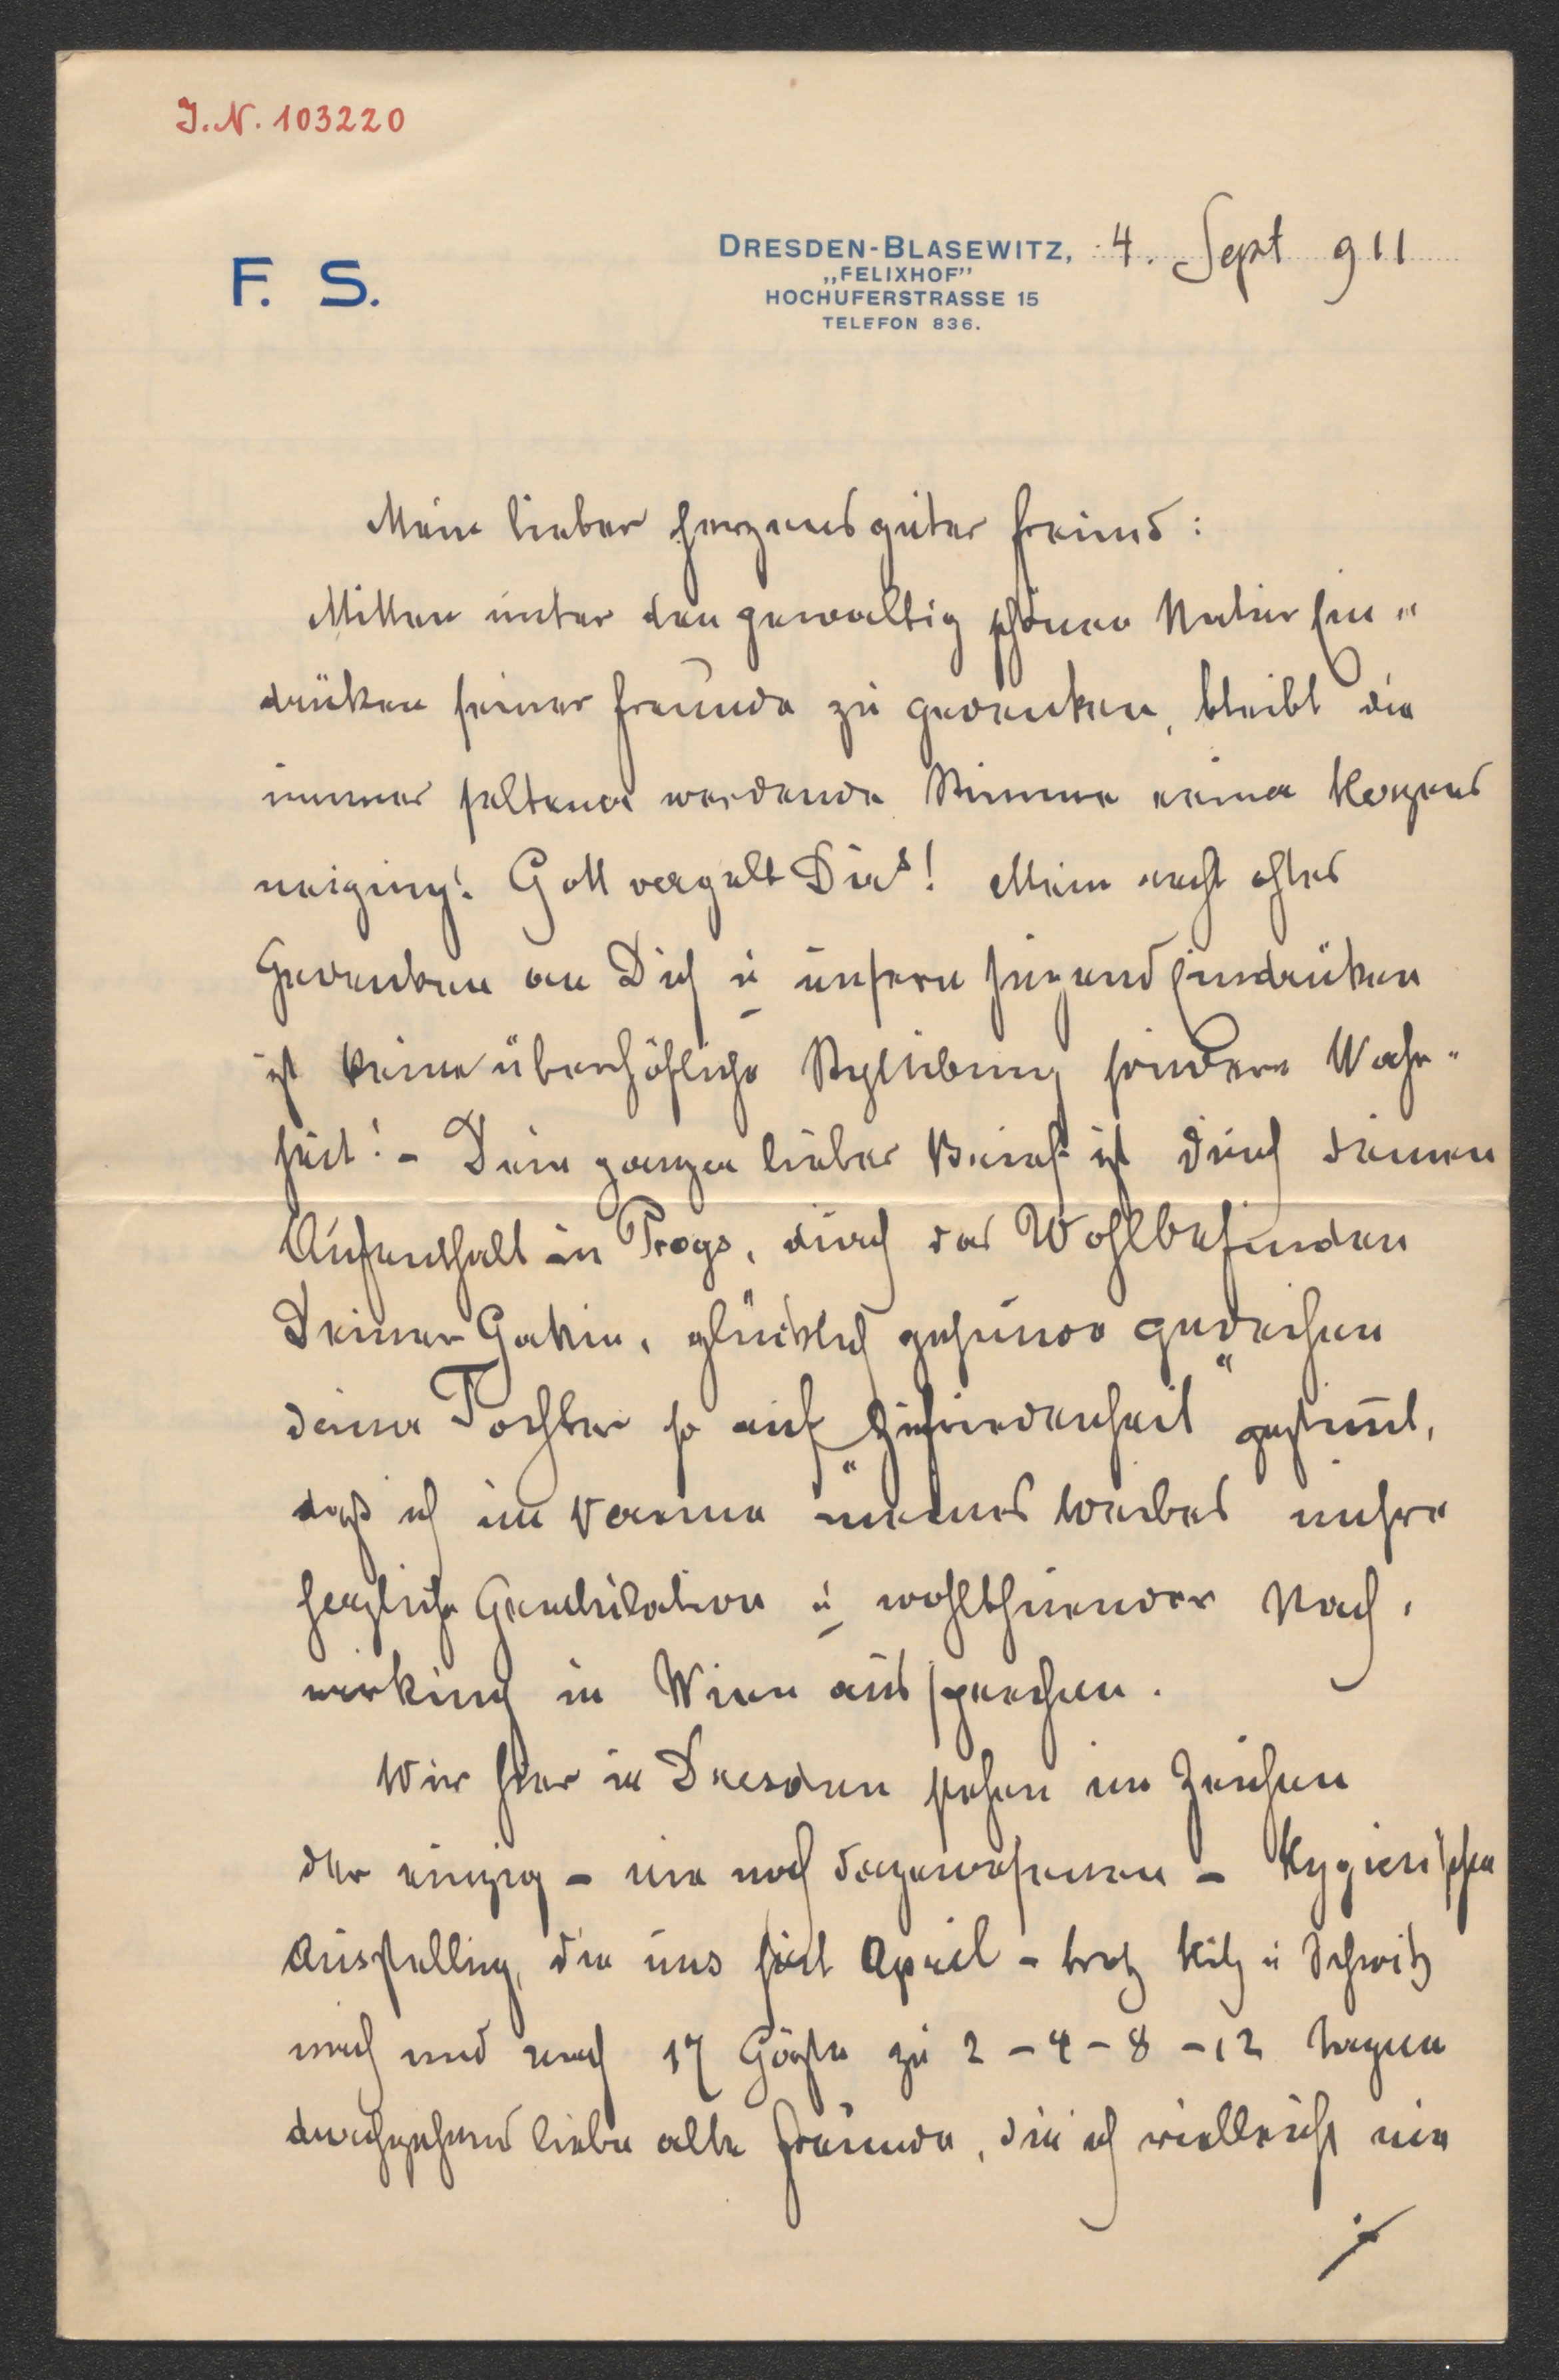 J. N. 103220
F. S.
DRESDEN-BLASEWITZ, 4. Sept 911
„FELIXHOF”
HOCHUFERSTRASSE 15
TELEFON 836.
Mein lieber herzensguter Freund:
Mitten unter den gewaltig schönen Natur Ein„
drüken seiner Freunde zu gedenken, bleibt die
immer seltener werdende Stimme einer Herzens
neigung! Gott vergelt Dirs! Mein recht oftes
Gedenken an Dich u unsern Jugend Eindrüken
ist keine überhöfliche Stylübung sondern Wahr„
heit! – Dein ganzer lieber Brief ist durch deinen
Aufenthalt in Prags, durch das Wohlbefinden
Deiner Gattin, glücklich gedeihen
deiner Tochter so auf „Zufriedenheit“ gestimt,
daß ich im Vereine meines Weibes unsre
herzliche Gratulation u wohlthuender Nach,
wirkung in Wien aussprechen.
Wir hier in Dresden stehen im Zeichen
der einzig – nie noch dagewesenen – Hygienischen
Ausstellung, die uns seit April – trotz Hitz u Schwitz
nach und nach 17 Gäste zu 2 – 4 – 8 – 12 Tagen
durchgehend liebe alte Freunde, die ich vielleicht nie